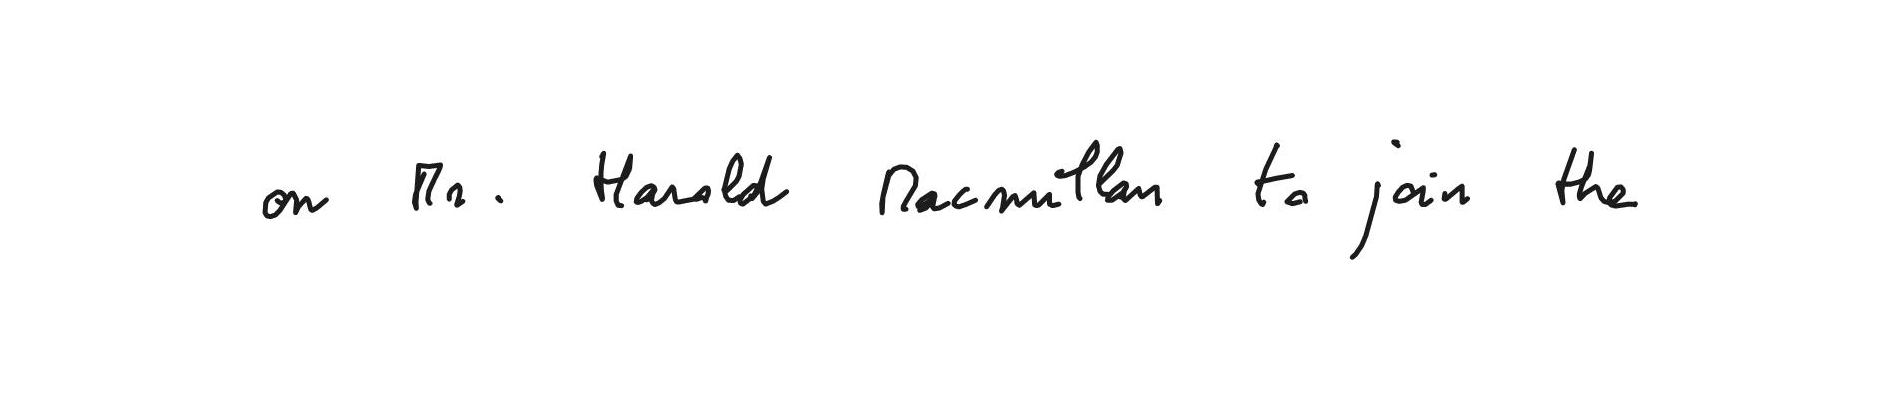 on Mr. Harald Macmillan to join the